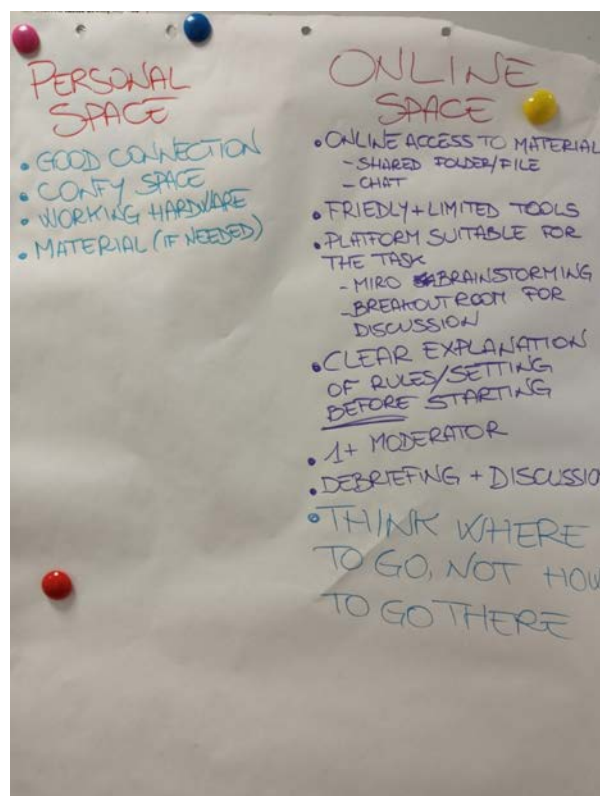 PERSONAL
SPACE
• GOOD CONNECTION
• CONFY SPACE
• WORKING HARDWARE
• MATERIAL (IF NEEDED)
ONLINE
SPACE
• ONLINE ACCESS TO MATERIAL
- SHARED FOLDER/FILE
- CHAT
• FRIEDLY + LIMITED TOOLS
• PLATFORM SUITABLE FOR
THE TASK
- MIRO BRAINSTORMING
- BREAKOUT ROOM FOR
DISCUSSION
• CLEAR EXPLANATION
OF RULES/SETTING
BEFORE STARTING
• 1+ MODERATOR
• DEBRIEFING + DISCUSSIO
• THINK WHERE
TO GO, NOT HOW
TO GO THERE